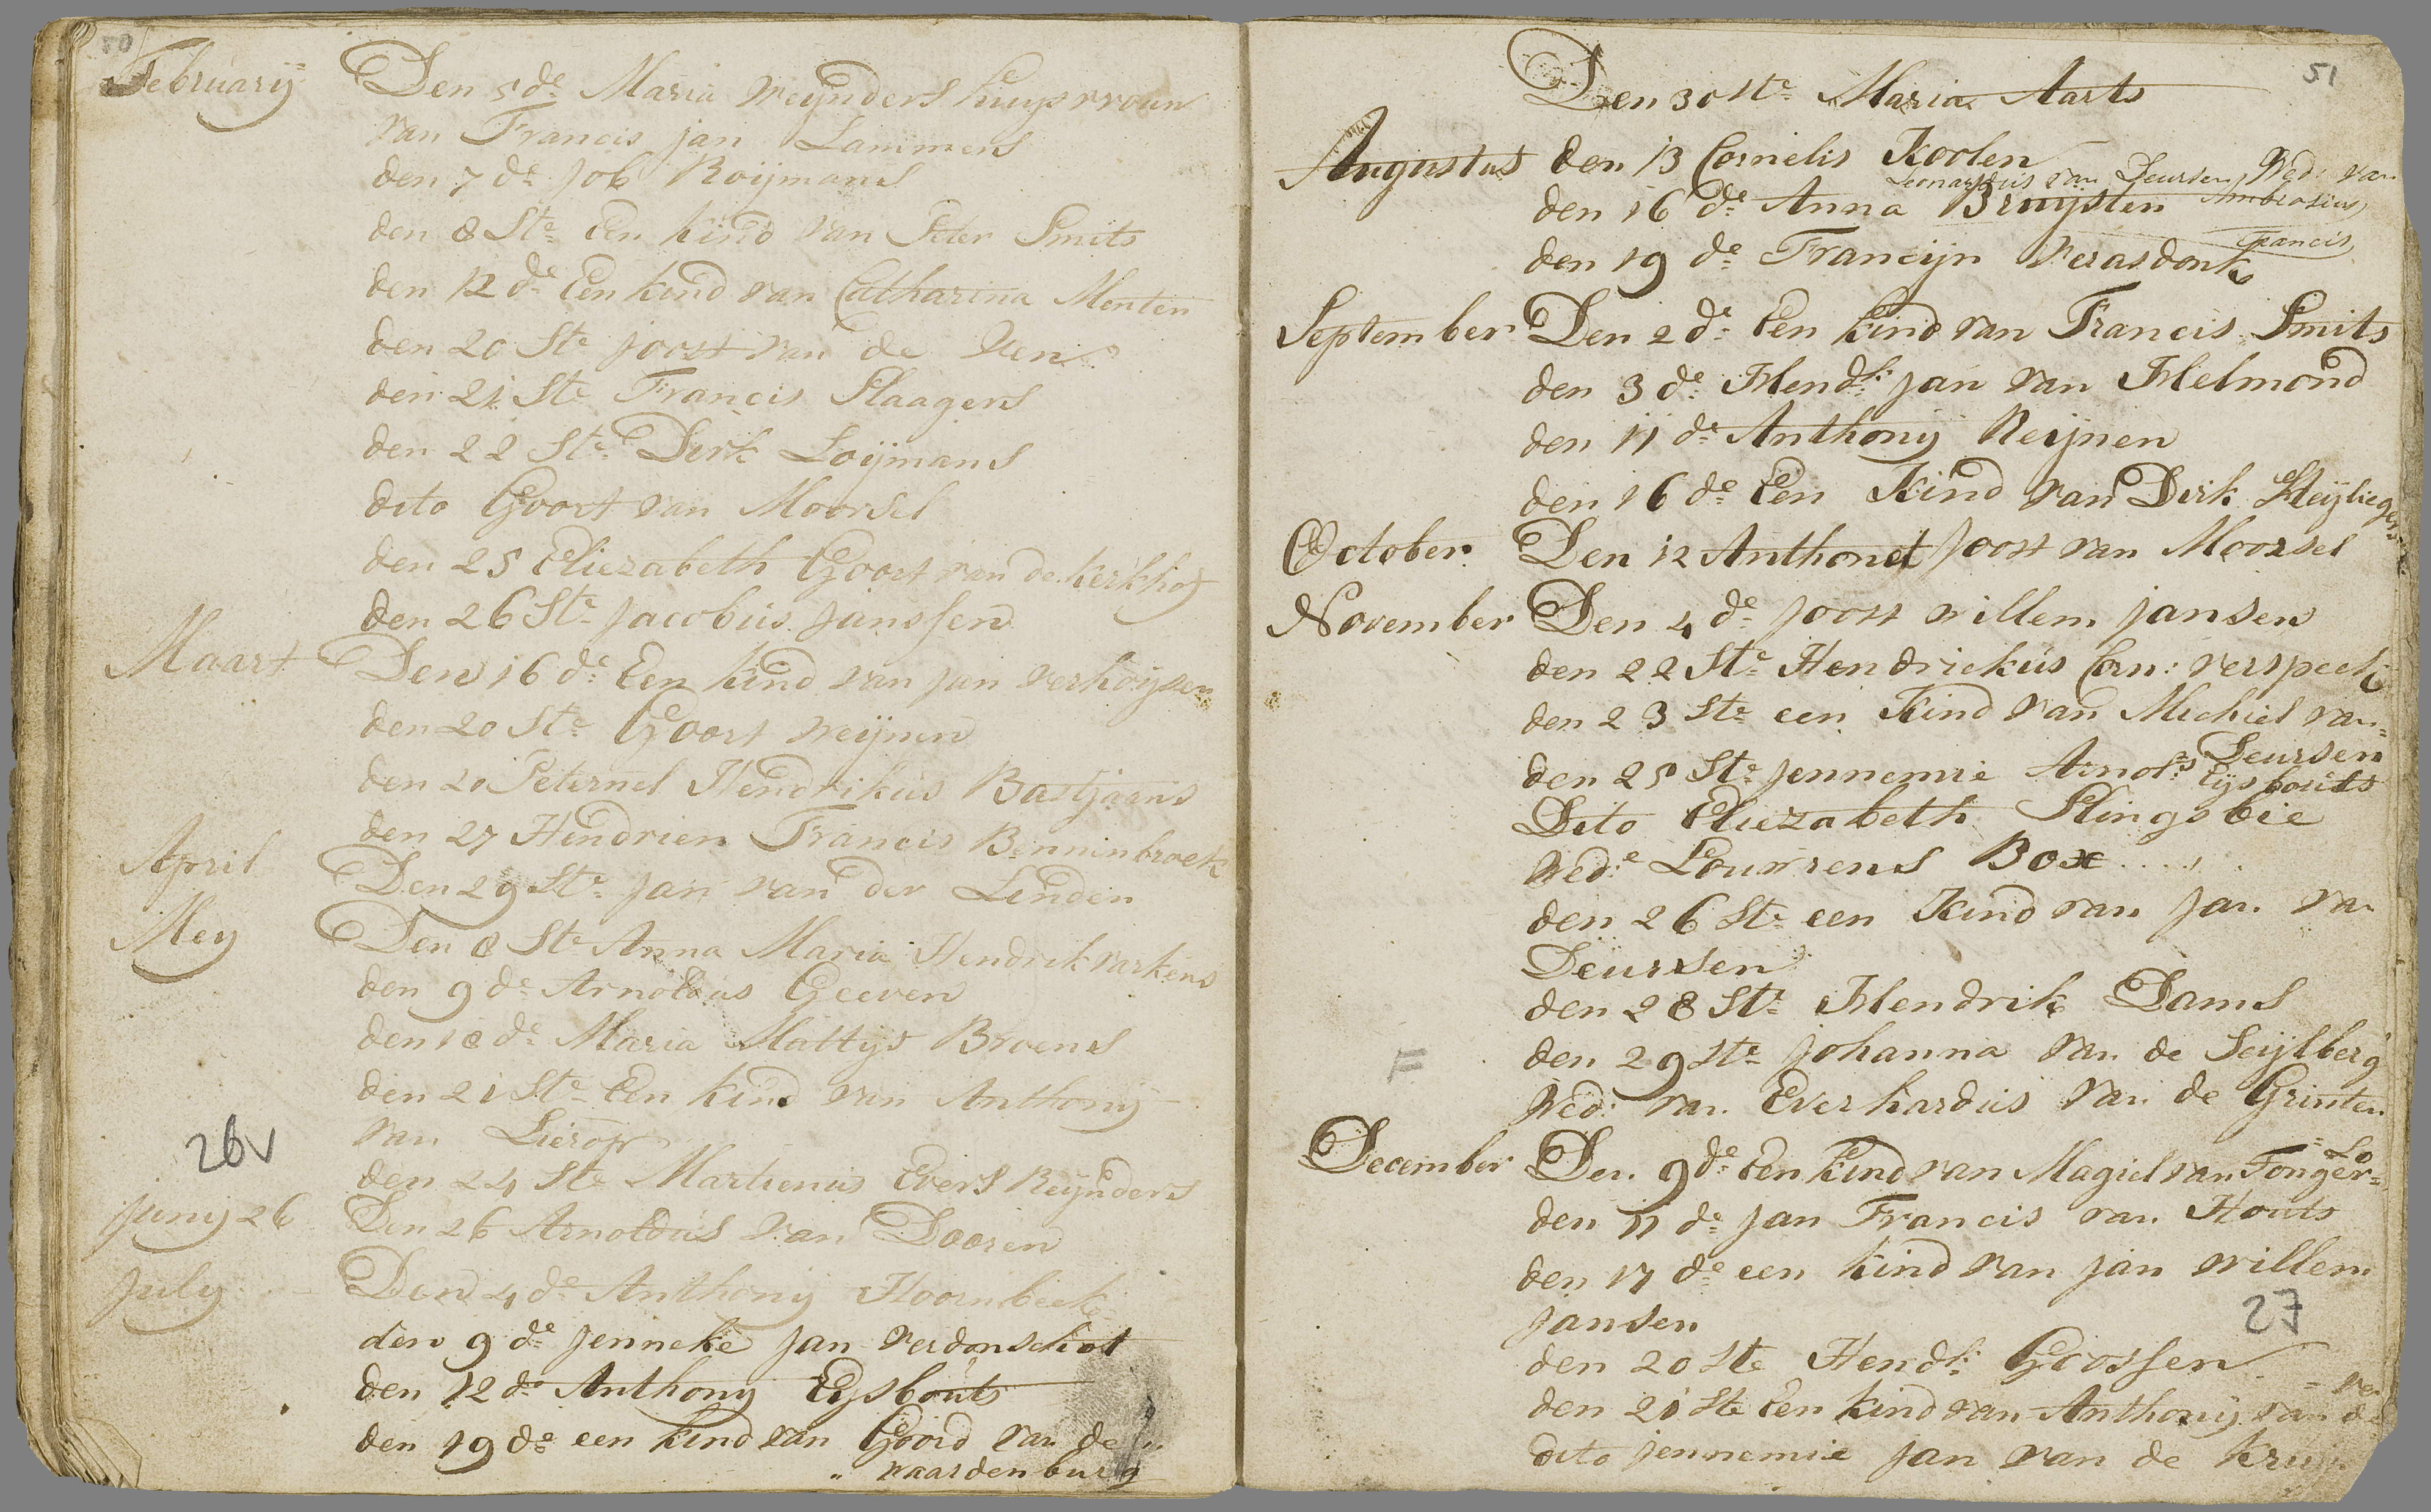 50
Februarij Den 5de Maria Weijnders huijsvrouw
van Francis jan Lammers
den 7de Job Roijmans
den 8ste Een kind van Peter Smits
den 12de Een kind van Catharina Menten
den 20ste joost van de Ven
den 21ste Francis Slaagers
den 22ste Dirk Loijmans
dito Goort van Moorsel
den 25 Eliezabeth Goort van de kerkhof
den 26ste jacobus janssen
Maart Den 16de Een kind van jan verhoijsen
den 20ste Goort Weijnen
den 20 Peternel Hendrikus Bastjaans
den 27 Hendrien Francis Benninbroek
April Den 29ste jan van der Linden
Meij Den 8ste Anna Maria Hendrik varkens
den 9de Arnoldus Geeven
den 18de Maria Mattijs Broens
den 21ste Een kind van Anthonij
van Lierop
26v
den 24ste Martienus Evers Reijnders
junij 26 Den 26 Arnoldus van Dooren
julij Den 4de Anthonij Hoornbeek
den 9de jenneke jan verdonschot
den 12de Anthonij Eijsbouts
den 19de een kind van Goord van de
" waardenburg
51
Den 30ste Maria Aarts
Augustus den 13 Cornelis Koolen
Leonardus van Deursen Wed: van
den 16de Anna Bruijsten Ambrosius
Francis
den 19de Francijn verasdonk
September Den 2de Een kind van Francis Smits
den 3de Hendk: jan van Helmond
den 11de Anthonij Reijnen
den 16de Een Kind van Dirk Heijliegers
October Den 12 Anthonet joost van Moorsel
November Den 4de joost willem jansen
den 22ste Hendriekus Corn: verspeek
den 23ste een Kind van Michiel van=
=Deursen
den 25ste jennemie Arnols: Eijsbouts
Dito Eliezabeth Slingsbie
Wede: Louwrens Box....
den 26ste een Kind van jan van
Deursen
den 28ste Hendrik Dams
den 29ste johanna van de Seijlberg
Wed: van Everhardus van de Grinten
=Lo
December Den 9de Een kind van Magiel van Tonger=
den 11de jan Francis van Houts
den 17de een kind van jan willem
jansen
27
den 20ste Hendk: Goossen
den 21ste Een kind van Anthonij van de
dito jennemie jan van de